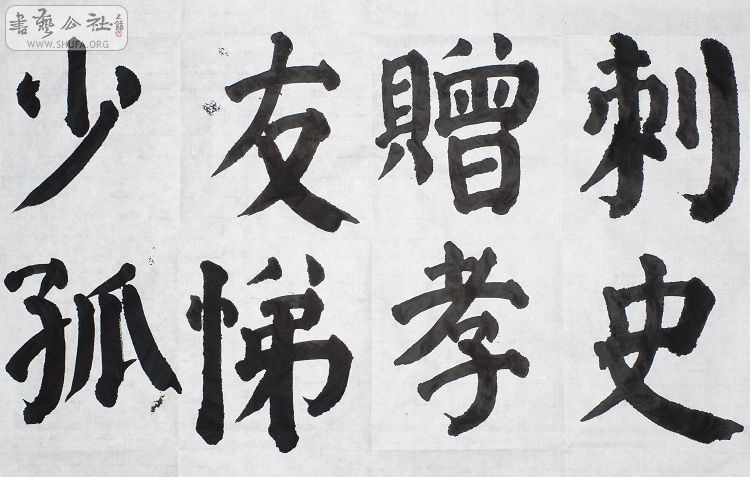 刺史
贈孝
友悌
少孤
書藝公社
WWW.SHUFA.ORG